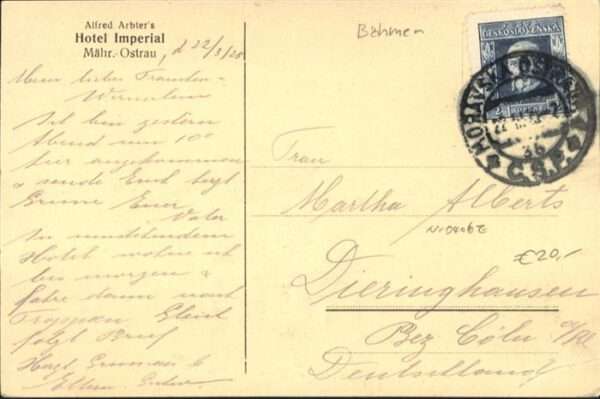 Alfred Arbter's
Hotel Imperial
Mähr.-Ostrau
, d 22/3/28
Mein lieber
Ich bin gestern
Abend um 10°
hier angekommen
& sende Euch herzl
Grüsse Euer
Vater
In
Hotel wohne ich
bis morgen &
fahre dann nach
Troppau Gleich
folgt Brief
Böhmen
ČESKOSLOVENSKÁ
MORAVSKÁ OSTRAVA
3b
Č.S.P.
Frau
Martha Alberts
€20,-
Dieringhausen
Bez Cöln a/Rh
Deutschland